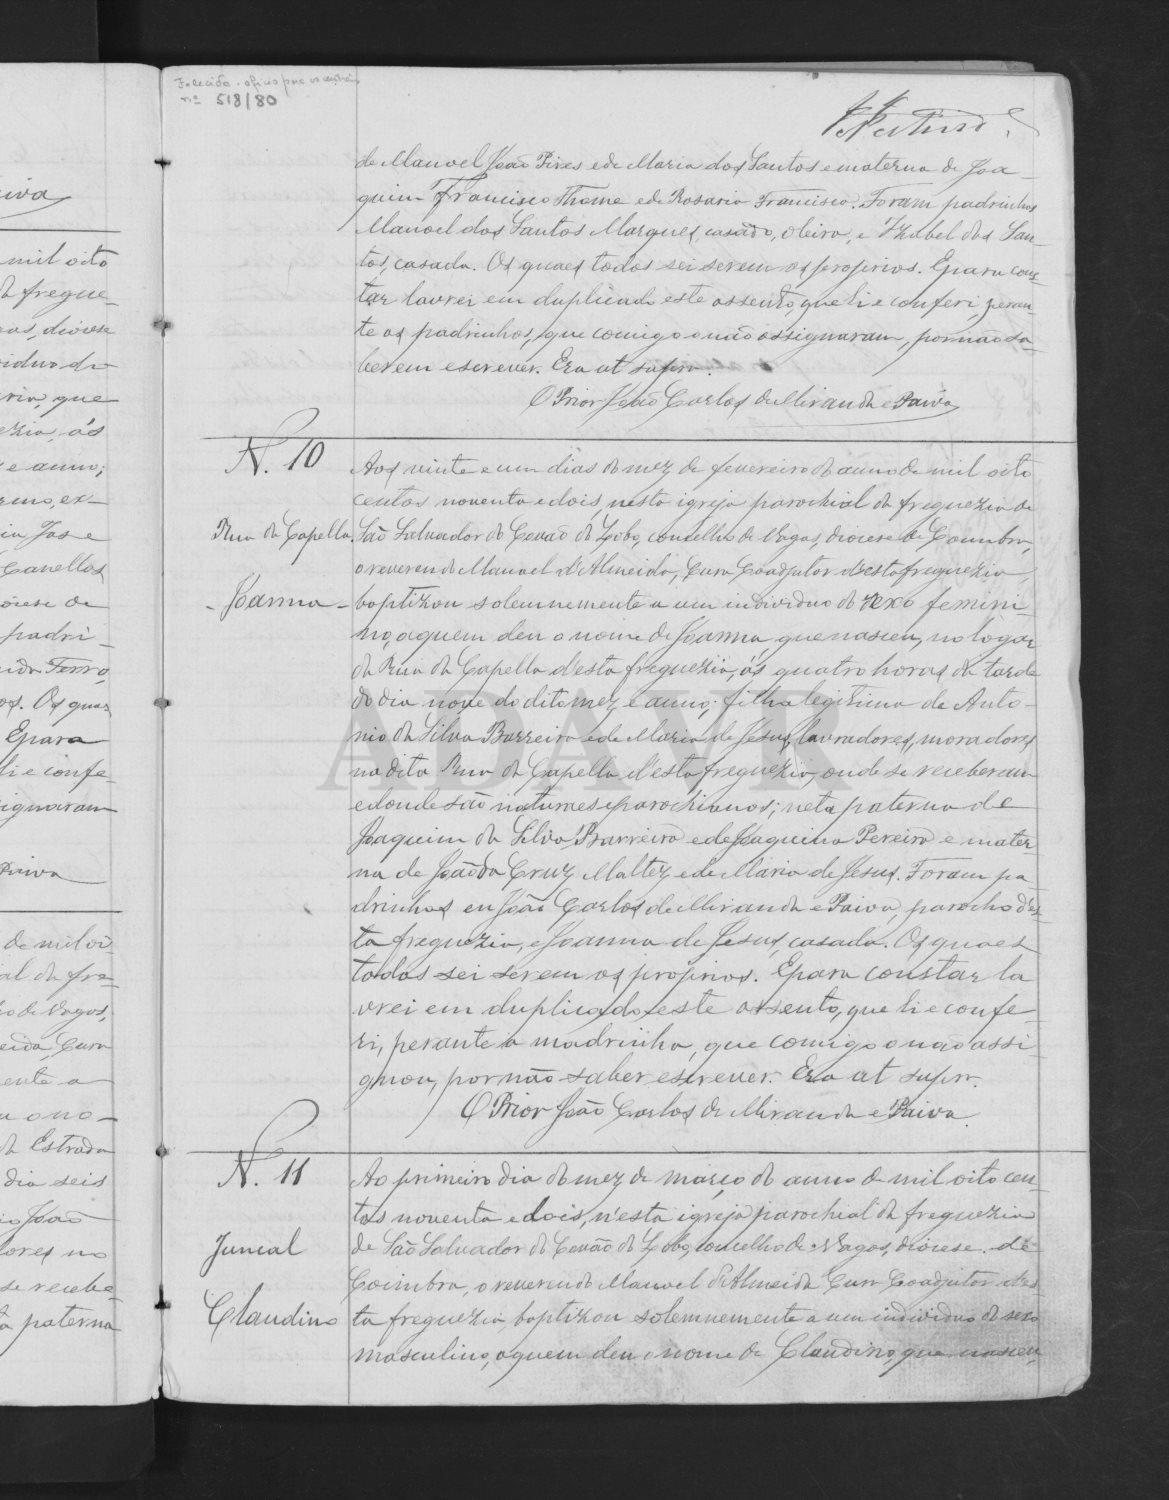 Falecida - oficio para os
nº 518/80
de Manoel João Pires e de Maria dos Santos e materna de Joa-
quim Francisco Thome e de Rosaria Francisco. Foram padrinhos
Manoel dos Santos Marques, casado, oleiro, e Izabel dos San-
tos, casada. Os quaes todos sei serem os proprios. E para cons-
tar lavrei em duplicado este assento, que li e conferi, peran-
te os padrinhos, que comigo o não assignaram, por não sa-
berem escrever. Era ut supra.
O Prior João Carlos de Miranda e Paiva
N. 10
Rua da Capella
- Joanna -
Aos vinte e um dias do mez de fevereiro do anno de mil oito
centos noventa e dois, nesta igreja parochial da freguezia de
São Salvador do Covão do Lobo, concelho de Vagos, diocese de Coimbra,
o reverendo Manoel d'Almeida, Cura Coadjutor d'esta freguezia,
baptizou solemnemente a um individuo do sexo femini-
no, a quem deu o nome de Joanna, que nasceu, no logar
da Rua da Capella d'esta freguezia, ás quatro horas da tarde
do dia nove do dito mez e anno; filha legitima de Anto-
nio da Silva Barreiro e de Maria de Jesus, lavradores, moradores
na dita Rua da Capella d'esta freguezia, onde se receberam
e donde são naturaes e parochianos; neta paterna de
Joaquim da Silva Barreiro e de Joaquina Pereira e mater-
na de João da Cruz Maltez e de Maria de Jesus. Foram pa-
drinhos eu João Carlos de Miranda e Paiva, parocho d'es-
ta freguezia, e Joanna de Jesus, casada. Os quaes
todos sei serem os proprios. E para constar la
vrei em duplicado este assento, que li e confe-
ri, perante a madrinha, que comigo o não assi-
gnou, por não saber escrever. Era ut supra.
O Prior João Carlos de Miranda e Paiva.
N. 11
Juncal
Claudino
Ao primeiro dia do mez de março do anno de mil oito cen-
tos noventa e dois, n'esta igreja parochial da freguezia
de São Salvador do Covão do Lobo, concelho de Vagos, diocese de
Coimbra, o reverendo Manoel d'Almeida Cura Coadjutor d'es-
ta freguezia, baptizou solemnemente a um individuo do sexo
masculino, a quem deu o nome de Claudino, que nasceu,
ADAVR
iva
mil oito
da fregue-
diocese
que
ás
e anno;
Canellas
diocese de
padri-
Ferro,
Os quaes
E para
li e confe-
signaram
Paiva
de mil oi-
al da fre-
ho de Vagos,
eida Cura
ente a
u o no-
da Estrada
dia seis
João
dores no
se recebe-
ta paterna